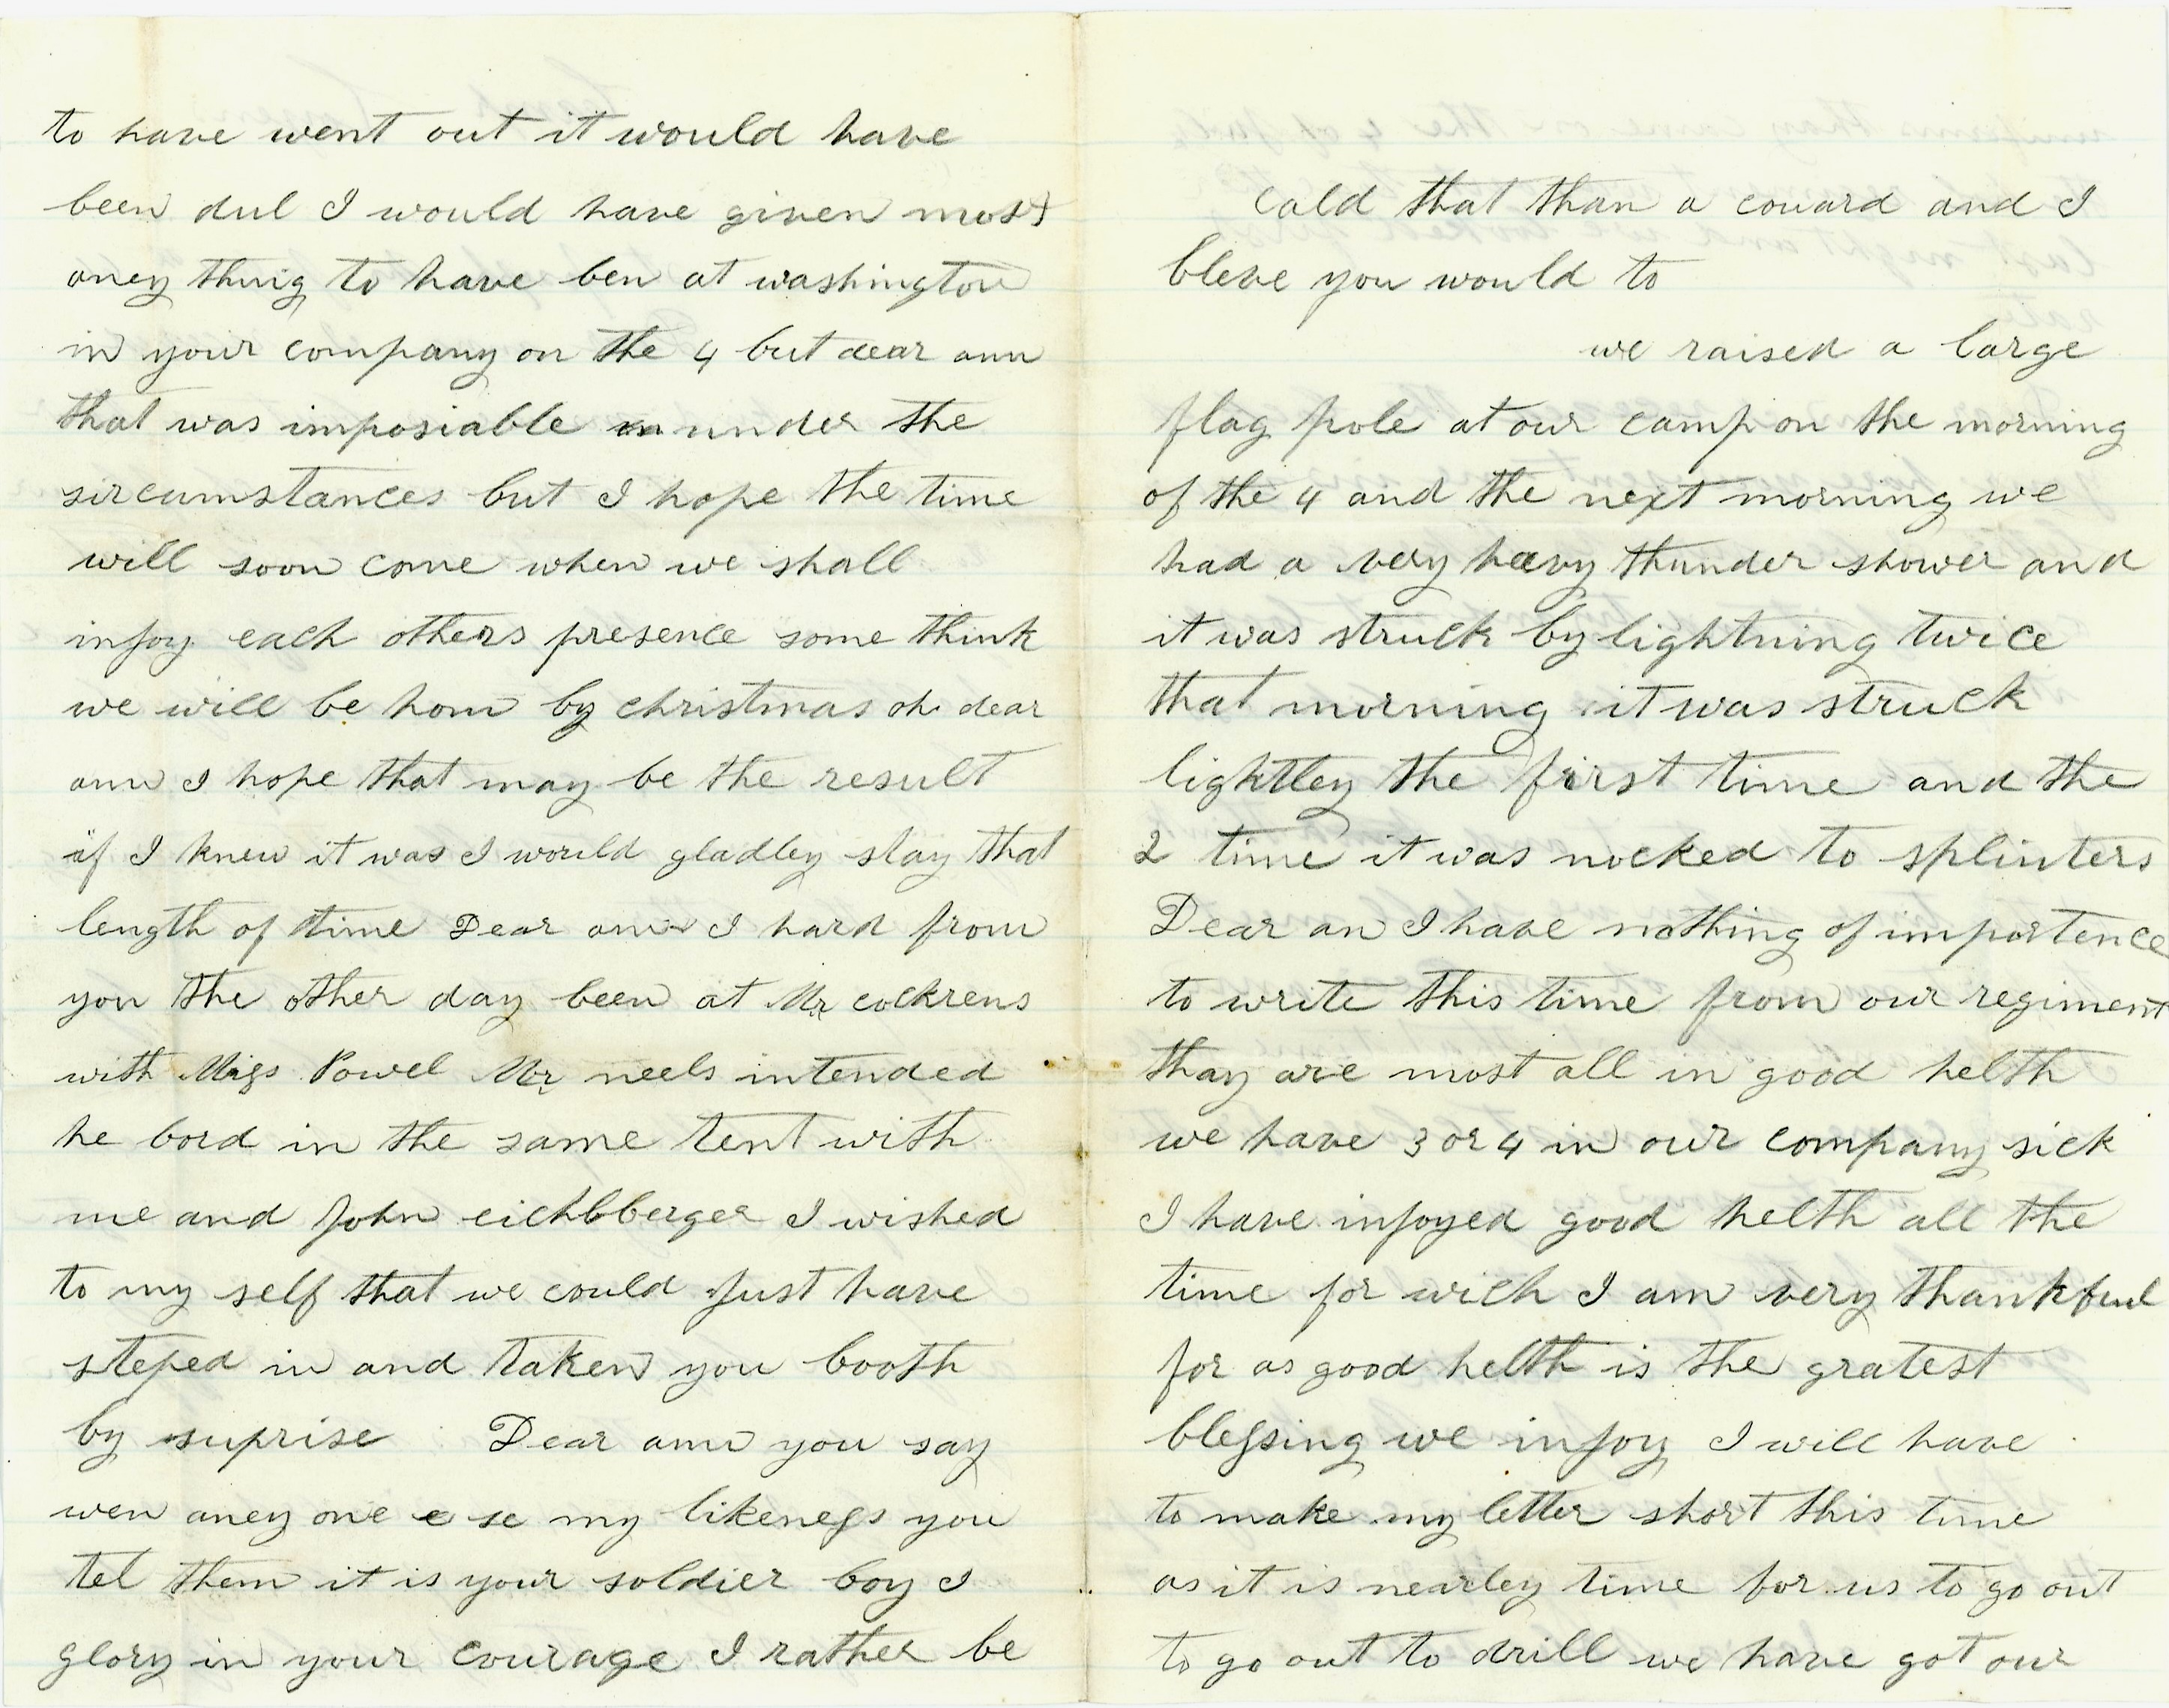 to have went out it would have
been dul I would have given most
aney thuig to have ben at washington
in your company on the 4 but dear ann
that was imposiable under the
sircumstances but I hope the time
will soon come when we shall
injoy each others presence some think
we will be hom by christmas oh dear
ann I hope that may be the result
if I knew it was I would gladley stay that
length of time Dear ann I hard from
you the other day been at Mr cockrens
with Miss Powel Mr neels intended
he bord in the same tent with
me and John eichbberger I wished
to my self that we could Just have
steped in and taken you booth
by suprise Dear ann you say
wen aney one se my likeness you
tel them it is your soldier boy I
glory in your courage I rather be
cald that than a couard and I
bleve you would to
we raised a large
flag pole at our camp on the morning
of the 4 and the next morning we
had a very heavy thunder shower and
it was struck by lightning twice
that morning it was struck
lightley the first time and the
2 time it was nocked to splinters
Dear an I have nothing of importence
to write this time from our regiment
thay are most all in good helth
we have 3 or 4 in our company sick
I have injoyed good helth all the
time for wich I am very thankful
for as good helth is the gratest
blessing we injoy I will have
to make my letter short this time
as it is nearley time for us to go out
to go out to drill we have got our